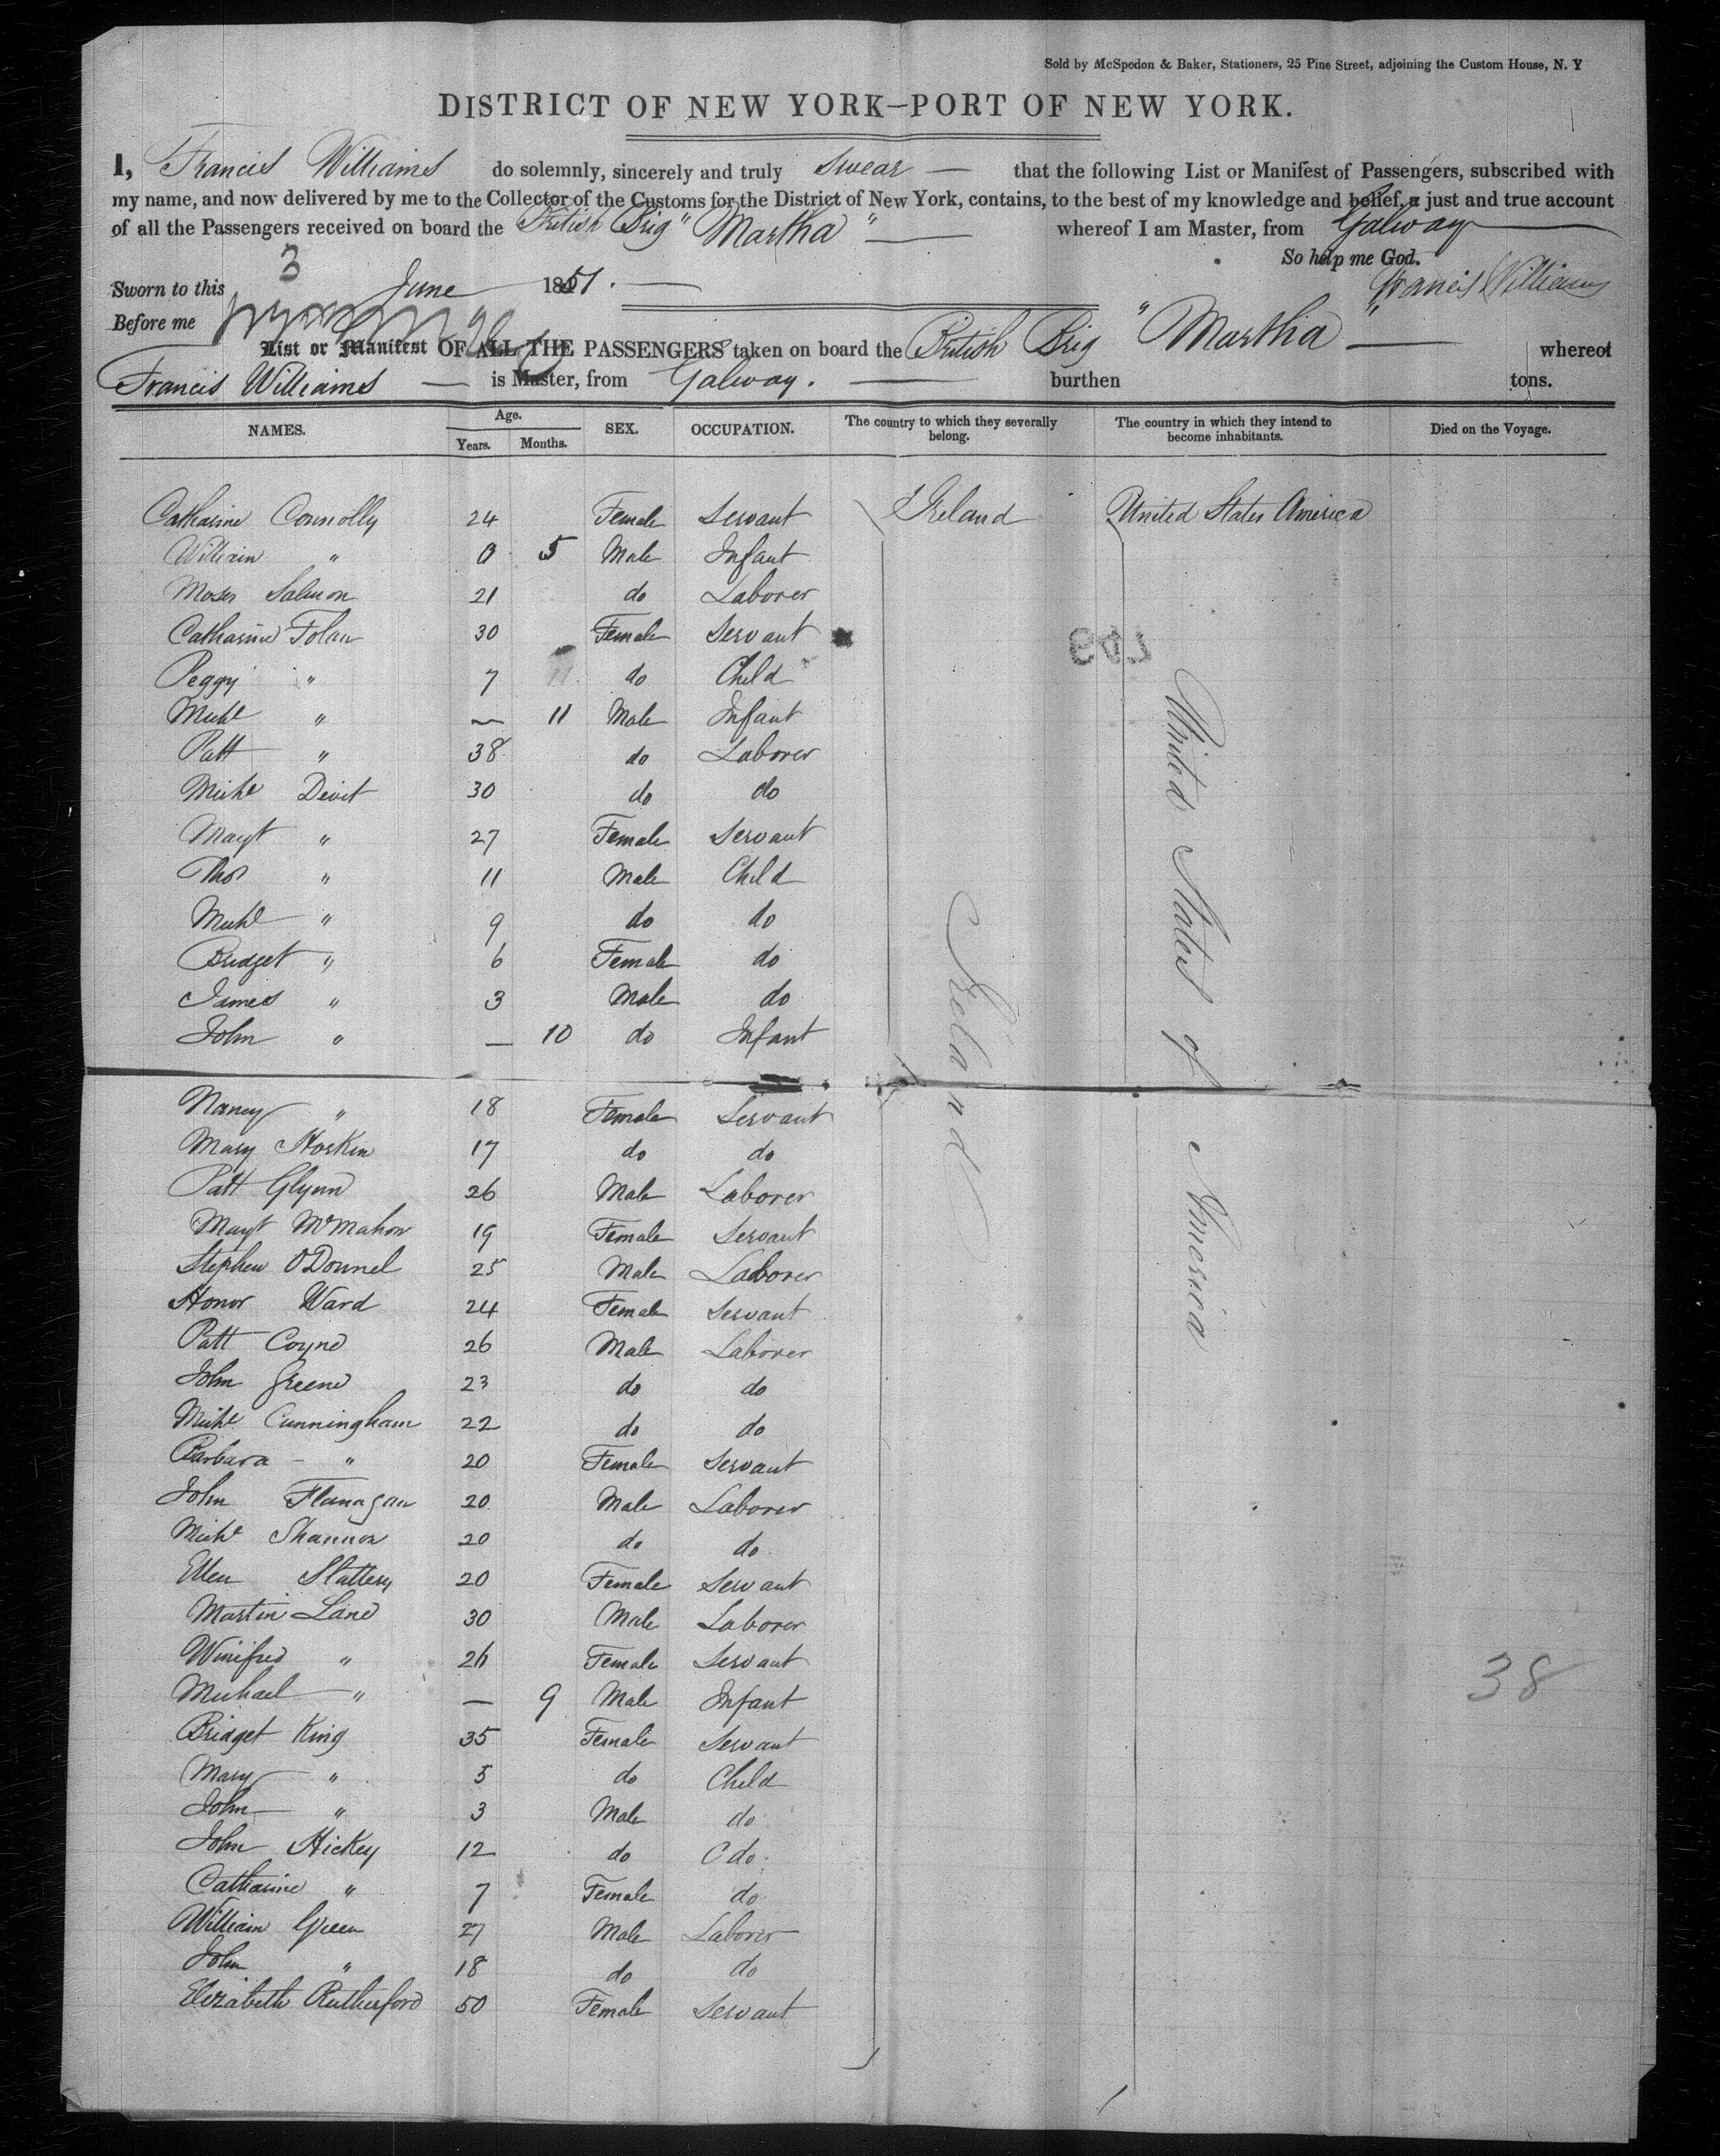 Sold by McSpedon & Baker, Stationers, 25 Pine Street, adjoining the Custom House, N. Y
DISTRICT OF NEW YORK—PORT OF NEW YORK.
I, Francis Williams do solemnly, sincerely and truly swear — that the following List or Manifest of Passengers, subscribed with
my name, and now delivered by me to the Collector of the Customs for the District of New York, contains, to the best of my knowledge and belief, a just and true account
of all the Passengers received on board the British Brig "Martha" — whereof I am Master, from Galway
So help me God.
Sworn to this 3 June 1851. Francis Williams
Before me
List or Manifest OF ALL THE PASSENGERS taken on board the British Brig "Martha" — whereof
Francis Williams — is Master, from Galway. — burthen tons.
NAMES. Age. Years. Months. SEX. OCCUPATION. The country to which they severally belong. The country in which they intend to become inhabitants. Died on the Voyage.
Catharine Connolly 24 Female Servant Ireland United States America
William " 0 5 Male Infant
Moses Salmon 21 do Laborer
Catharine Folan 30 Female Servant
Peggy " 7 do Child
Michl " — 11 Male Infant
Patt " 38 do Laborer
Michl Devit 30 do do
Magt " 27 Female Servant
Thos " 11 Male Child
Michl " 9 do do
Bridget " 6 Female do
James " 3 Male do
John " — 10 do Infant
Nancy " 18 Female Servant
Mary Hoskin 17 do do
Patt Glynn 26 Male Laborer
Magt McMahon 19 Female Servant
Stephen ODonnel 25 Male Laborer
Honor Ward 24 Female Servant
Patt Coyne 26 Male Laborer
John Greene 23 do do
Michl Cunningham 22 do do
Barbara - " 20 Female Servant
John Flanagan 20 Male Laborer
Michl Shannon 20 do do
Ellen Slattery 20 Female Servant
Martin Lane 30 Male Laborer
Winifred " 26 Female Servant
Michael " — 9 Male Infant
Bridget King 35 Female Servant
Mary " 5 do Child
John " 3 Male do
John Hickey 12 do do
Catharine " 7 Female do
William Green 27 Male Laborer
John " 18 do do
Elizabeth Rutherford 50 Female Servant
Ireland
United States of America
38